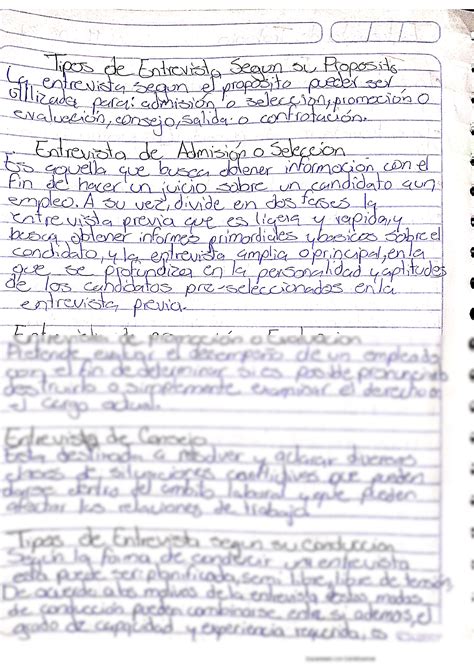 Tipos de Entrevista Segun su Proposito
La entrevista segun el proposito pueder ser
utilizada para: admisión o seleccion, promoción o
evaluacion, consejo, salida o contratación.
Entrevista de Admisión o Seleccion
Es aquella que busca obtener informacion con el
fin del hacer un juicio sobre un candidato a un
empleo. A su vez, divide en dos fases la
entrevista previa que es ligera y rapida, y
busca obtener informes primordiales y basicos sobre el
candidato, y la entrevista amplia o principal, en la
que se profundiza en la personalidad y aptitudes
de los candidatos pre-seleccionados en la
entrevista previa.
Entrevista de promoción o Evaluacion
Pretende evaluar el desempeño de un empleado
con el fin de determinar si es posible
o simplemente examinar el derecho a
el cargo actual.
Entrevista de Consejo
Esta destinada a resolver y aclarar diversas
clases de situaciones conflictivas que pueden
darse dentro del ambito laboral y que pueden
afectar las relaciones de trabajo
Tipos de Entrevista segun su conduccion
Según la forma de conducir una entrevista
esta puede ser: planificada, semi libre, libre de tensión
De acuerdo a los motivos de la entrevista estos modos
de conduccion pueden combinarse entre si ademas, el
grado de capacidad y experiencia requerida, es